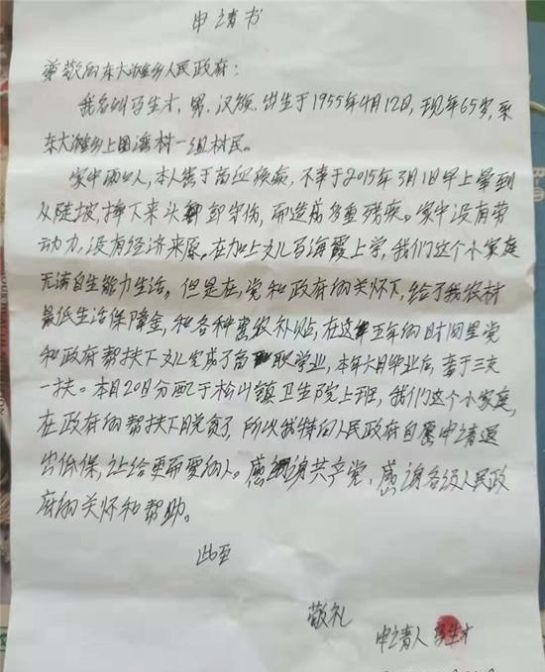 申请书
尊敬的东大滩乡人民政府：
我名叫马生才，男，汉族，出生于1955年4月12日，现年65岁，系
东大滩乡上圈湾村一组村民。
家中两口人，本人属于高血压疾病，不幸于2015年3月1日早上晕倒
从陡坡摔下来头部受伤，而造成多重残疾。家中没有劳
动力，没有经济来原。在加上女儿马海霞上学，我们这个小家庭
无满自生能力生活。但是在，党和政府的关怀下，给了我农村
最低生活保障金，和各种惠农补贴，在这五年的时间里党
和政府帮扶下女儿完成了高职学业，本年六月毕业后，考于三支
一扶。本月20日分配于松山镇卫生院上班，我们这个小家庭，
在政府的帮扶下脱贫了，所以我特向人民政府自愿申请退
出低保，让给更需要的人。感谢共产党，感谢各级人民政
府的关怀和帮助。
此至
敬礼
申请人 马生才